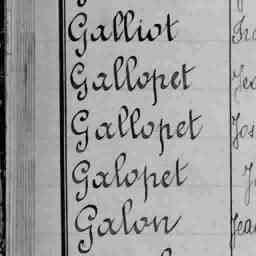 Galliot
Gallopet
Gallopet
Galopet
Galon